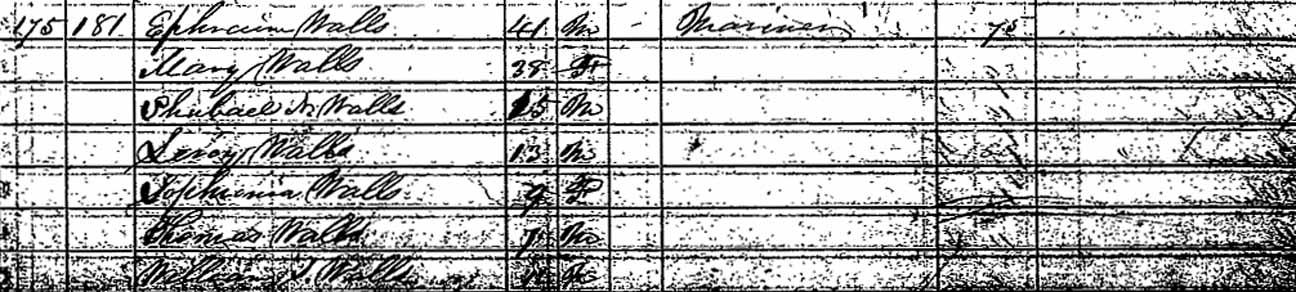 175 181 Ephraim Walls 41 M Mariner 75
Mary Walls 38 F
Shubael N Walls 15 M
Leroy Walls 13 M
Sophronia Walls 9 F
Thomas Walls M
William Walls M